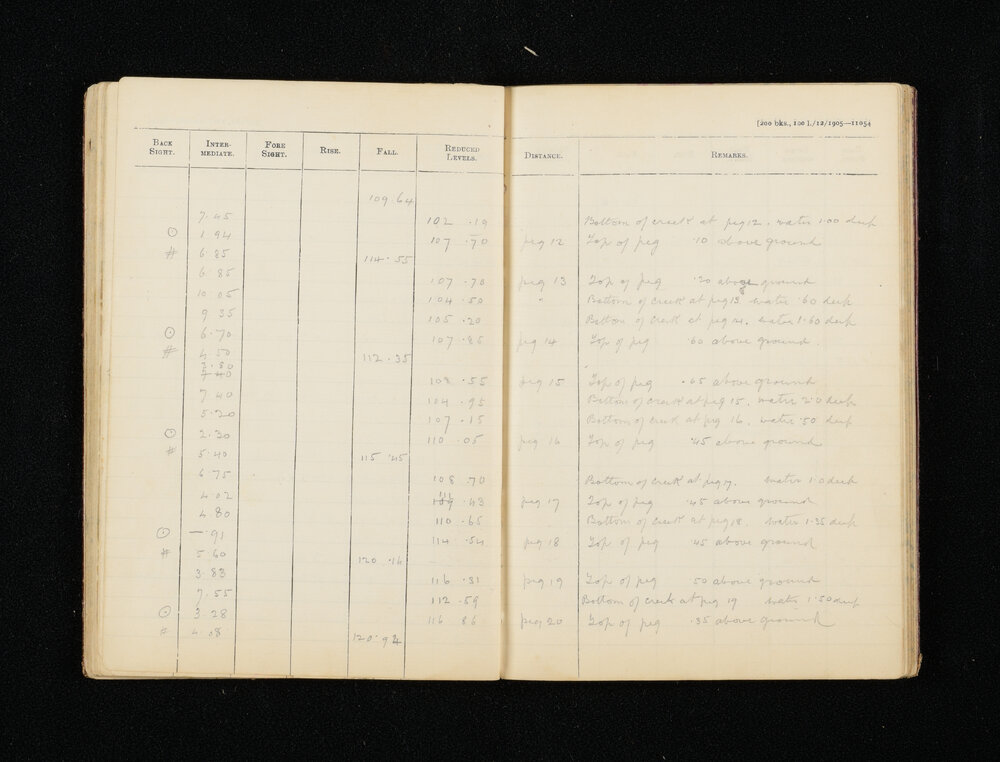 [200 bks., 100 l./12/1905—11054
BACK SIGHT. INTER-MEDIATE. FORE SIGHT. RISE. FALL. REDUCED LEVELS. DISTANCE. REMARKS.
109 64
7.45 102 .19 Bottom of creek at peg 12. water 1.00 deep
⊙ 1.94 107 .70 peg 12 Top of peg .10 above ground
# 6.85 114.55
6.85 107 .70 peg 13 Top of peg .20 above ground
10.05 104.50 " Bottom of creek at peg 13 water .60 deep
9 35 105 .20 Bottom of creek at peg 14. water 1.60 deep
⊙ 6.70 107 .85 peg 14 Top of peg .60 above ground.
# 4.50 112.35
3.80
7 40 108 .55 peg 15 Top of peg .65 above ground
7 40 104 .95 Bottom of creek at peg 15. water 2.0 deep
5.20 107 .15 Bottom of creek at peg 16. water .50 deep
⊙ 2.30 110 .05 peg 16 Top of peg .45 above ground
# 5.40 115 .45
6.75 108 70 Bottom of creek at peg 17. water 1.0 deep
4.02 111 .43 peg 17 Top of peg .45 above ground
4.80 110 .65 Bottom of creek at peg 18. water 1.35 deep
⊙ —.91 114 .54 peg 18 Top of peg .45 above ground
# 5.60 120 .14
3.83 116 .31 peg 19 Top of peg .50 above ground
7.55 112 .59 Bottom of creek at peg 19 water 1.50 deep
⊙ 3.28 116 86 peg 20 Top of peg .35 above ground
# 4.08 120.94